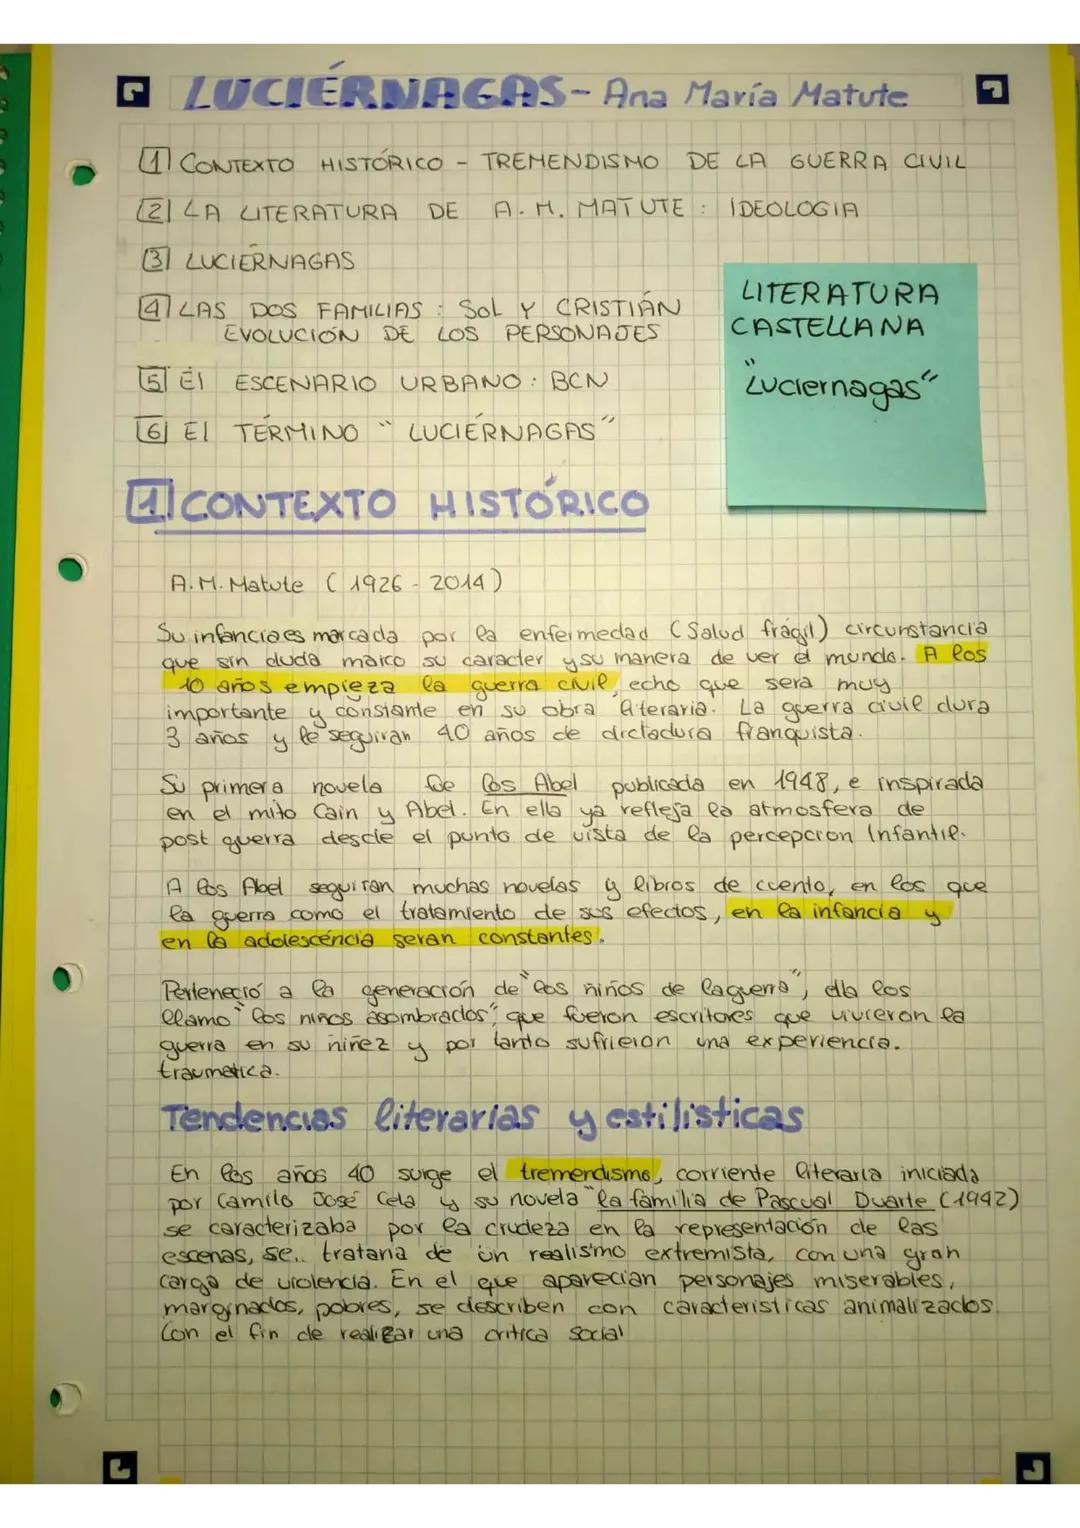 LUCIÉRNAGAS - Ana María Matute
1 CONTEXTO HISTÓRICO - TREMENDISMO DE LA GUERRA CIVIL
2 LA LITERATURA DE A. M. MATUTE : IDEOLOGIA
3 LUCIÉRNAGAS
4 LAS DOS FAMILIAS : SOL Y CRISTIÁN
EVOLUCIÓN DE LOS PERSONAJES
5 El ESCENARIO URBANO : BCN
6 El TÉRMINO " LUCIÉRNAGAS"
LITERATURA
CASTELLANA
"Luciernagas"
1 CONTEXTO HISTÓRICO
A. M. Matute (1926 - 2014)
Su infancia es marcada por la enfermedad (Salud frágil) circunstancia
que sin duda marco su caracter y su manera de ver el mundo. A los
10 años empieza la guerra civil, echo que sera muy
importante y constante en su obra literaria. La guerra civil dura
3 años y le seguiran 40 años de dictadura franquista.
Su primera novela fue los Abel publicada en 1948, e inspirada
en el mito Cain y Abel. En ella ya refleja la atmosfera de
post guerra desde el punto de vista de la percepcion Infantil.
A los Abel seguiran muchas novelas y libros de cuento, en los que
la guerra como el tratamiento de sus efectos, en la infancia y
en la adolescéncia seran constantes.
Perteneció a la generación de "los niños de la guerra", ella los
llamo "los niños asombrados", que fueron escritores que vivieron la
guerra en su niñez y por tanto sufrieron una experiencia.
traumatica.
Tendencias literarias y estilisticas
En los años 40 surge el tremendismo, corriente literaria iniciada
por Camilo José Cela y su novela "la familia de Pascual Duarte (1942)
se caracterizaba por la crudeza en la representación de las
escenas, se.. trataria de un realismo extremista, con una gran
carga de violencia. En el que aparecian personajes miserables,
marginados, pobres, se describen con caracteristicas animalizados.
Con el fin de realizar una critica social